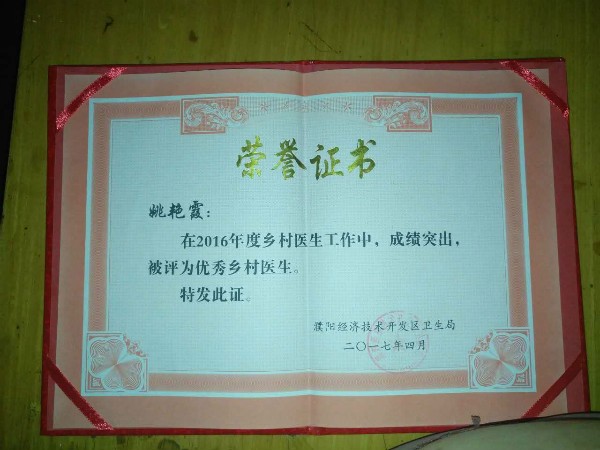 荣誉证书
姚艳霞：
在2016年度乡村医生工作中，成绩突出，
被评为优秀乡村医生。
特发此证。
濮阳经济技术开发区卫生局
二〇一七年四月